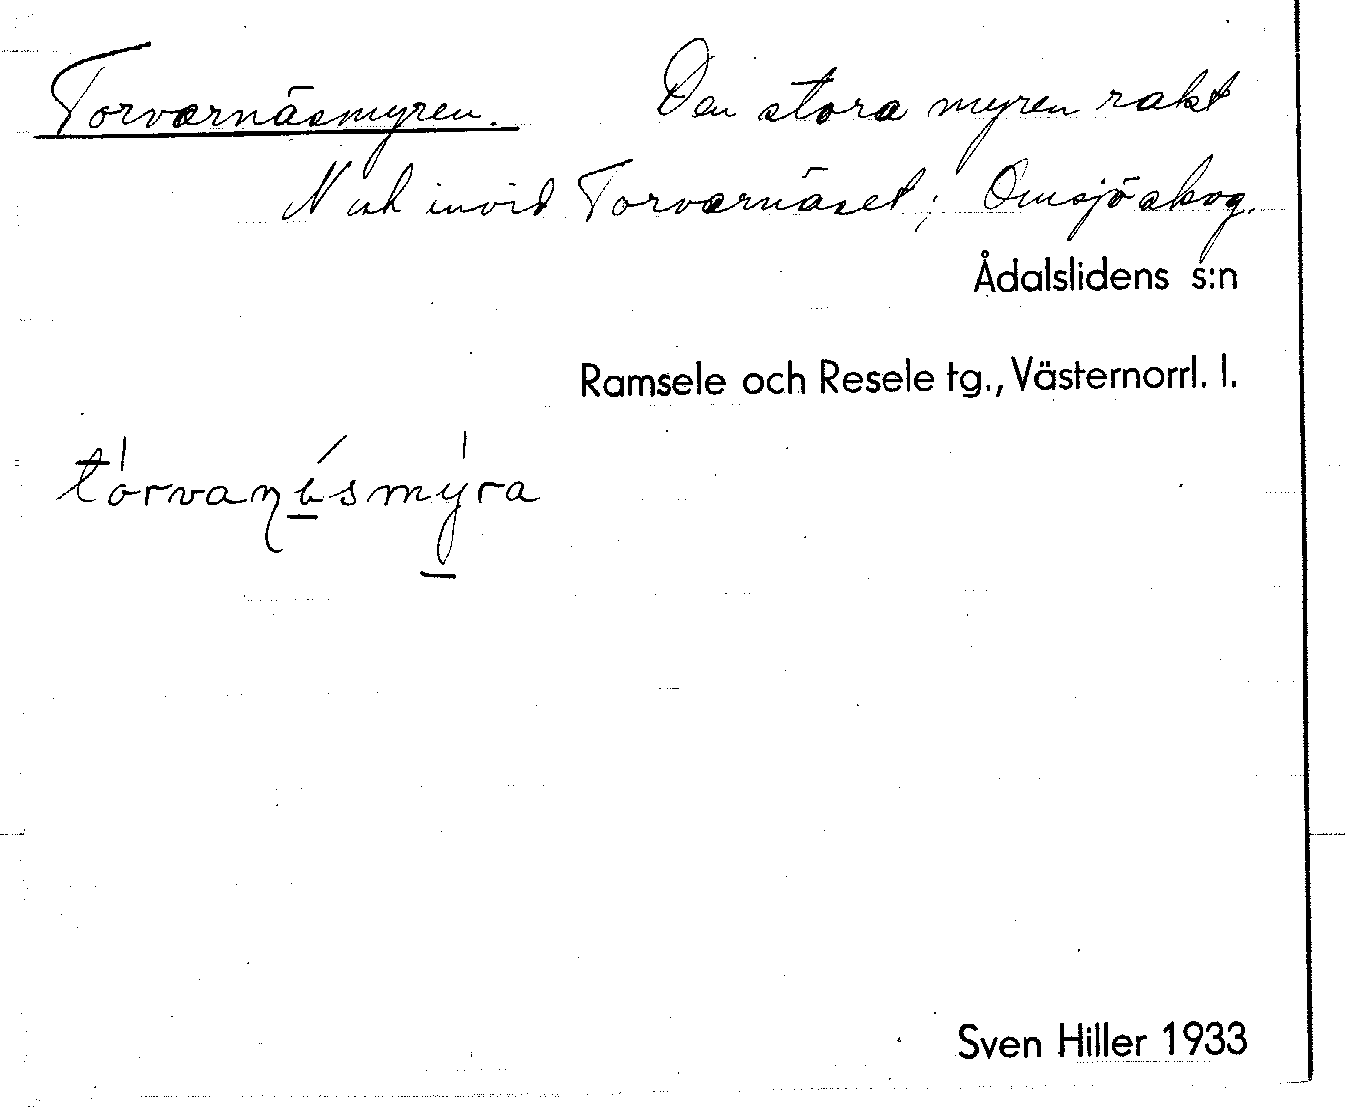 Torvarnäsmyren. Den stora myren rakt
N och invid Torvarnäset; Omsjö skog.
Ådalslidens s:n
Ramsele och Resele tg., Västernorrl. l.
Sven Hiller 1933